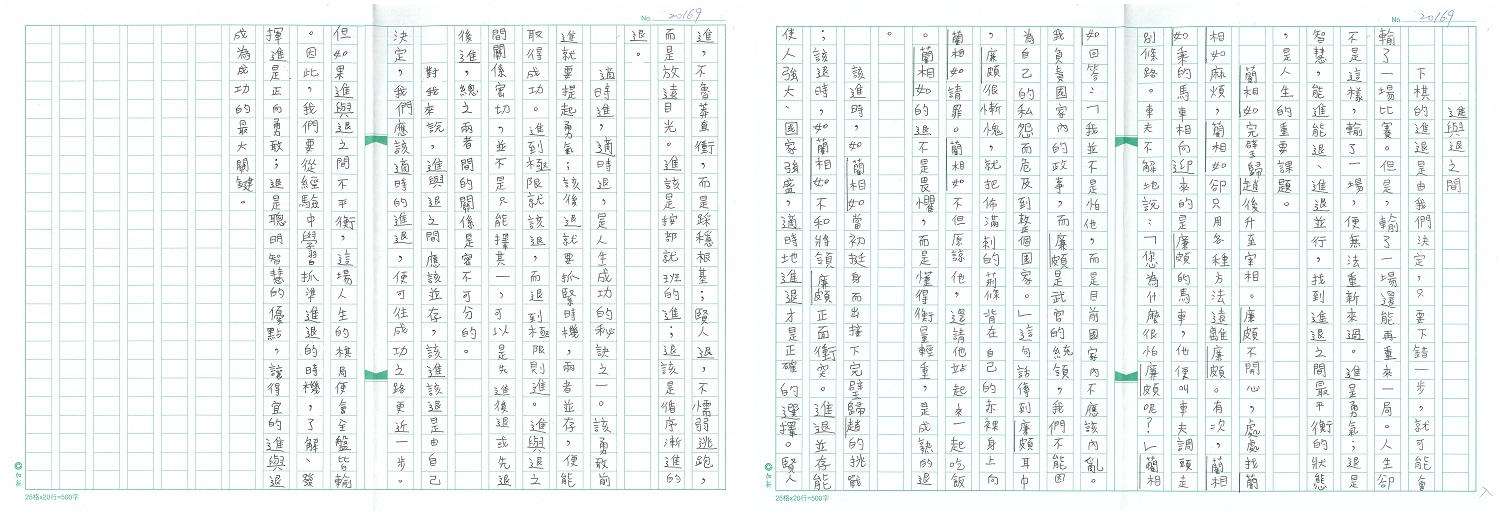 No 20169
進與退之間
下棋的進退是由我們決定,只要下錯一步,就可能會
輸了一場比賽。但是,輸了一場還能再重來一局。人生卻
不是這樣,輸了一場,便無法重新來過。進是勇氣;退是
智慧,能進能退、進退並行,找到進退之間最平衡的狀態
,是人生的重要課題。
藺相如完璧歸趙後升至宰相。廉頗不開心,處處找藺
相如麻煩,藺相如卻只用各種方法遠離廉頗。有次,藺相
如乘的馬車相向迎來的是廉頗的馬車,他便叫車夫調頭走
別條路。車夫不解地說:「您為什麼很怕廉頗呢?」藺相
如回答:「我並不是怕他,而是目前國家內不應該內亂。
我負責國家內的政事,而廉頗是武官的統領,我們不能因
為自己的私怨而危及到整個國家。」這句話傳到廉頗耳中
,廉頗很慚愧,就把佈滿刺的荊條背在自己的赤裸身上向
藺相如請罪。藺相如不但原諒他,還請他站起來一起吃飯
。藺相如的退不是畏懼,而是懂得衡量輕重,是成熟的退
。
該進時,如藺相如當初挺身而出接下完璧歸趙的挑戰
;該退時,如藺相如不和將領廉頗正面衝突。進退並存能
使人強大、國家強盛,適時地進退才是正確的選擇。賢人
No 20169
進,不魯莽直衝,而是踩穩根基;賢人退,不懦弱逃跑,
而是放遠目光。進該是按部就班的進;退該是循序漸進的
退。
適時進,適時退,是人生成功的秘訣之一。該勇敢前
進就要提起勇氣;該後退就要抓緊時機,兩者並存,便能
取得成功。進到極限就該退,而退到極限則進。進與退之
間關係密切,並不是只能擇其一,可以是先進後退或先退
後進,總之兩者間的關係是密不可分的。
對我來說,進與退之間應該並存,該進該退是由自己
決定,我們應該適時的進退,便可往成功之路更近一步。
但如果進與退之間不平衡,這場人生的棋局便會全盤皆輸
。因此,我們要從經驗中學習抓準進退的時機,了解、發
揮進是正向勇敢;退是聰明智慧的優點,讓得宜的進與退
成為成功的最大關鍵。
25格x20行=500字
25格x20行=500字